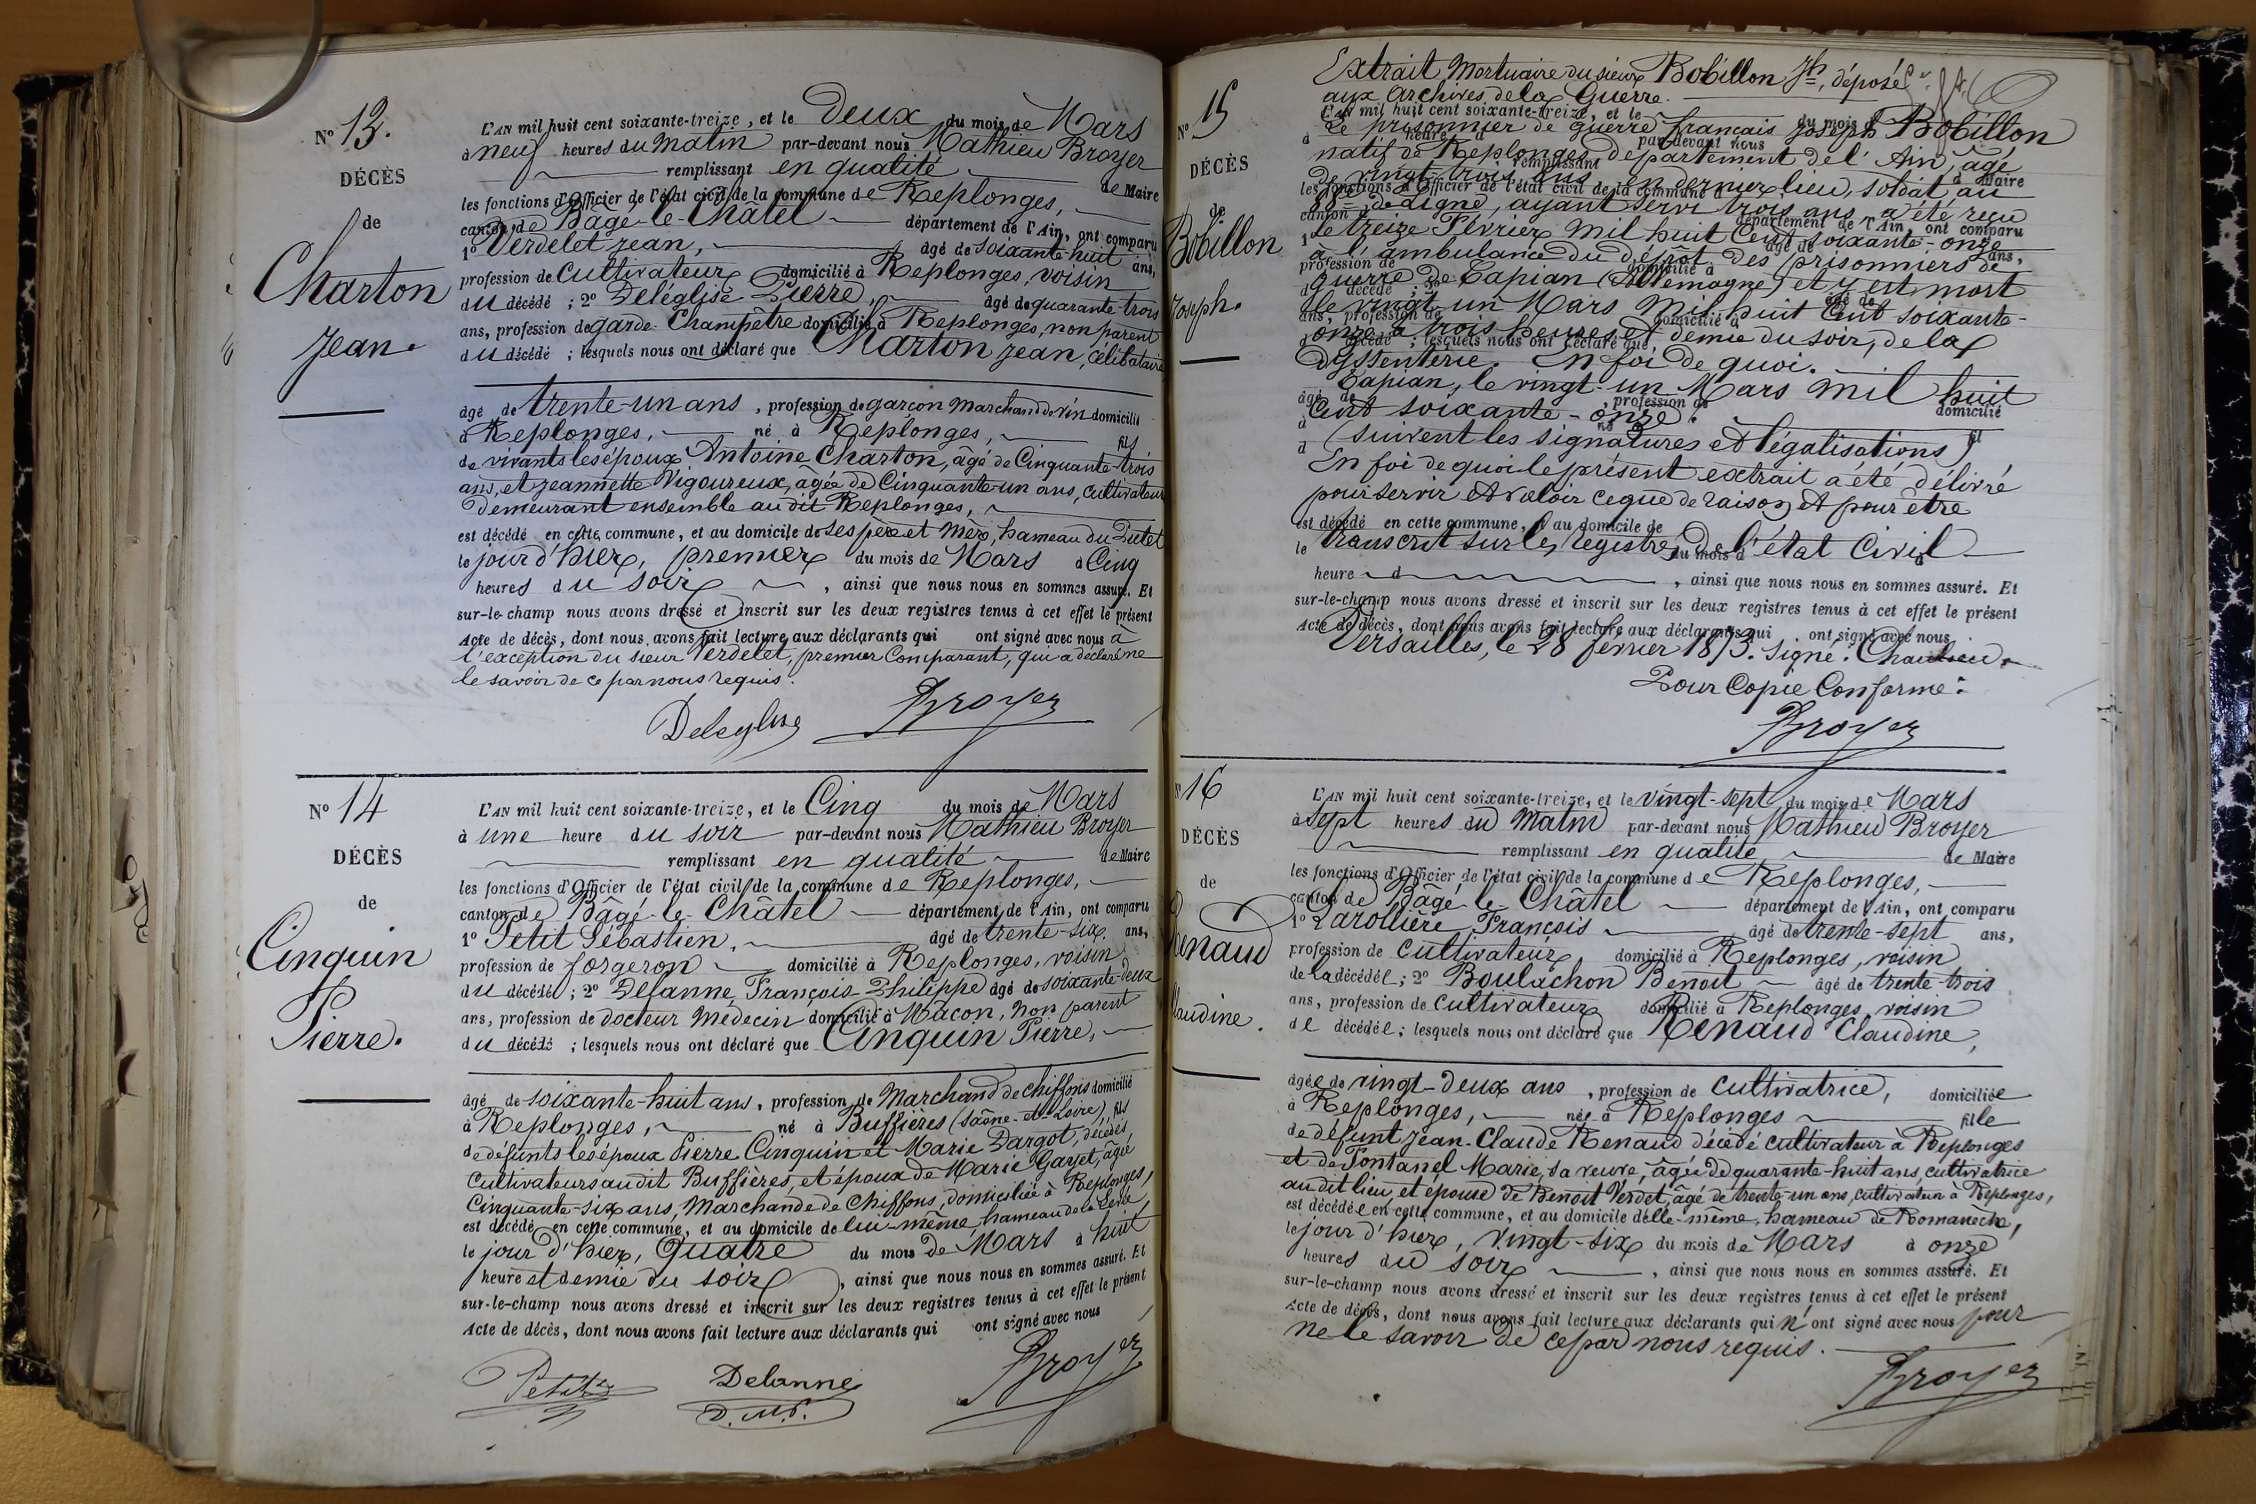 N° 13.
DÉCÈS
de
Charton
Jean.
L'AN mil huit cent soixante-treize, et le Deux du mois de Mars
à neuf heures du Matin par-devant nous Mathieu Broyer
remplissant en qualité de Maire
les fonctions d'Officier de l'état civil de la commune de Replonges,
canton de Bâgé-le-Châtel département de l'Ain, ont comparu
1° Verdelet Jean, âgé de soixante-huit ans,
profession de Cultivateur domicilié à Replonges, voisin
du décédé ; 2° Deléglise Pierre, âgé de quarante-trois
ans, profession de garde-Champêtre domicilié à Replonges, non parent
du décédé ; lesquels nous ont déclaré que Charton Jean, Célibataire
âgé de trente-un ans, profession de garçon Marchand de vin domicilié
à Replonges, né à Replonges, fils
de vivants les époux Antoine Charton, âgé de Cinquante-trois
ans, et Jeannette Vigoureux, âgée de Cinquante-un ans, cultivateurs
demeurant ensemble audit Replonges,
est décédé en cette commune, et au domicile de ses père et Mère, hameau du
le jour d'hier, premier du mois de Mars à Cinq
heures du soir, ainsi que nous nous en sommes assuré. Et
sur-le-champ nous avons dressé et inscrit sur les deux registres tenus à cet effet le présent
Acte de décès, dont nous avons fait lecture aux déclarants qui ont signé avec nous à
l'exception du sieur Verdelet, premier Comparant, qui a déclaré ne
le savoir de ce par nous requis.
Deleglise Broyer
N° 14
DÉCÈS
de
Cinquin
Pierre.
L'AN mil huit cent soixante-treize, et le Cinq du mois de Mars
à une heure du soir par-devant nous Mathieu Broyer
remplissant en qualité de Maire
les fonctions d'Officier de l'état civil de la commune de Replonges,
canton de Bâgé-le-Châtel département de l'Ain, ont comparu
1° Petit Sébastien, âgé de trente-six ans,
profession de forgeron domicilié à Replonges, voisin
du décédé ; 2° Delanne François-Philippe âgé de soixante-deux
ans, profession de docteur Médecin domicilié à Mâcon, non parent
du décédé ; lesquels nous ont déclaré que Cinquin Pierre,
âgé de soixante-huit ans, profession de Marchand de chiffons domicilié
à Replonges, né à Buffières (Saône-et-Loire), fils
de défunts les époux Pierre Cinquin et Marie Dargot, décédés
cultivateurs audit Buffières, et époux de Marie Garjet, âgée
Cinquante-six ans, Marchande de Chiffons, domiciliée à Replonges,
est décédé en cette commune, et au domicile de lui-même, hameau de la Levée,
le jour d'hier, Quatre du mois de Mars à huit
heure et demie du soir, ainsi que nous nous en sommes assuré. Et
sur-le-champ nous avons dressé et inscrit sur les deux registres tenus à cet effet le présent
Acte de décès, dont nous avons fait lecture aux déclarants qui ont signé avec nous
Petit Delanne Broyer
D. M. P.
N° 15
DÉCÈS
de
Bobillon
Joseph.
Extrait Mortuaire du sieur Bobillon Jh, déposé
aux Archives de la Guerre.
L'AN mil huit cent soixante-treize, et le du mois d
Le prisonnier de guerre français Joseph Bobillon
à heure d par-devant nous
natif de Replonges département de l'Ain, âgé
remplissant
de vingt-trois ans en dernier lieu, soldat au
les fonctions d'Officier de l'état civil de la commune d Maire
88me de ligne, ayant servi trois ans, a été reçu
canton d département de l'Ain, ont comparu
1° Le treize Février Mil huit Cent soixante-onze
âgé de ans,
à l'ambulance du dépôt des prisonniers de
profession de domicilié à
guerre de Capian (Allemagne) et y est mort
d décédé ; 2° âgé de
le vingt-un Mars Mil huit Cent soixante-
ans, profession de domicilié à
onze à trois heures et demie du soir, de la
d décédé ; lesquels nous ont déclaré que
dyssenterie. En foi de quoi.
Capian, le vingt-un Mars mil huit
âgé de profession de domicilié
Cent soixante-onze.
à né à
(suivent les signatures et légalisations)
d fil
En foi de quoi le présent extrait a été délivré
pour servir et valoir ce que de raison et pour être
est décédé en cette commune, et au domicile de
transcrit sur les registres de l'état Civil
le du mois d à
heure d, ainsi que nous nous en sommes assuré. Et
sur-le-champ nous avons dressé et inscrit sur les deux registres tenus à cet effet le présent
Acte de décès, dont nous avons fait lecture aux déclarants qui ont signé avec nous
Versailles, le 28 février 1873. Signé :
Pour Copie Conforme :
Broyer
N° 16
DÉCÈS
de
Renaud
Claudine.
L'AN mil huit cent soixante-treize, et le vingt-sept du mois de Mars
à sept heures du Matin par-devant nous Mathieu Broyer
remplissant en qualité de Maire
les fonctions d'Officier de l'état civil de la commune de Replonges,
canton de Bâgé-le-Châtel département de l'Ain, ont comparu
1° Larollière François âgé de trente-sept ans,
profession de Cultivateur domicilié à Replonges, voisin
de la décédée ; 2° Boulachon Benoit âgé de trente-trois
ans, profession de Cultivateur domicilié à Replonges, voisin
de décédée ; lesquels nous ont déclaré que Renaud Claudine,
âgée de vingt-deux ans, profession de cultivatrice, domiciliée
à Replonges, née à Replonges fille
de défunt Jean-Claude Renaud décédé cultivateur à Replonges
et de Fontanel Marie, sa veuve, âgée de quarante-huit ans, cultivatrice
audit lieu, et épouse de Benoit Verdet, âgé de trente-un ans, cultivateur à Replonges,
est décédée en cette commune, et au domicile d'elle-même, hameau de Romanèche,
le jour d'hier, Vingt-six du mois de Mars à onze
heures du soir, ainsi que nous nous en sommes assuré. Et
sur-le-champ nous avons dressé et inscrit sur les deux registres tenus à cet effet le présent
Acte de décès, dont nous avons fait lecture aux déclarants qui n'ont signé avec nous pour
ne le savoir de ce par nous requis.
Broyer